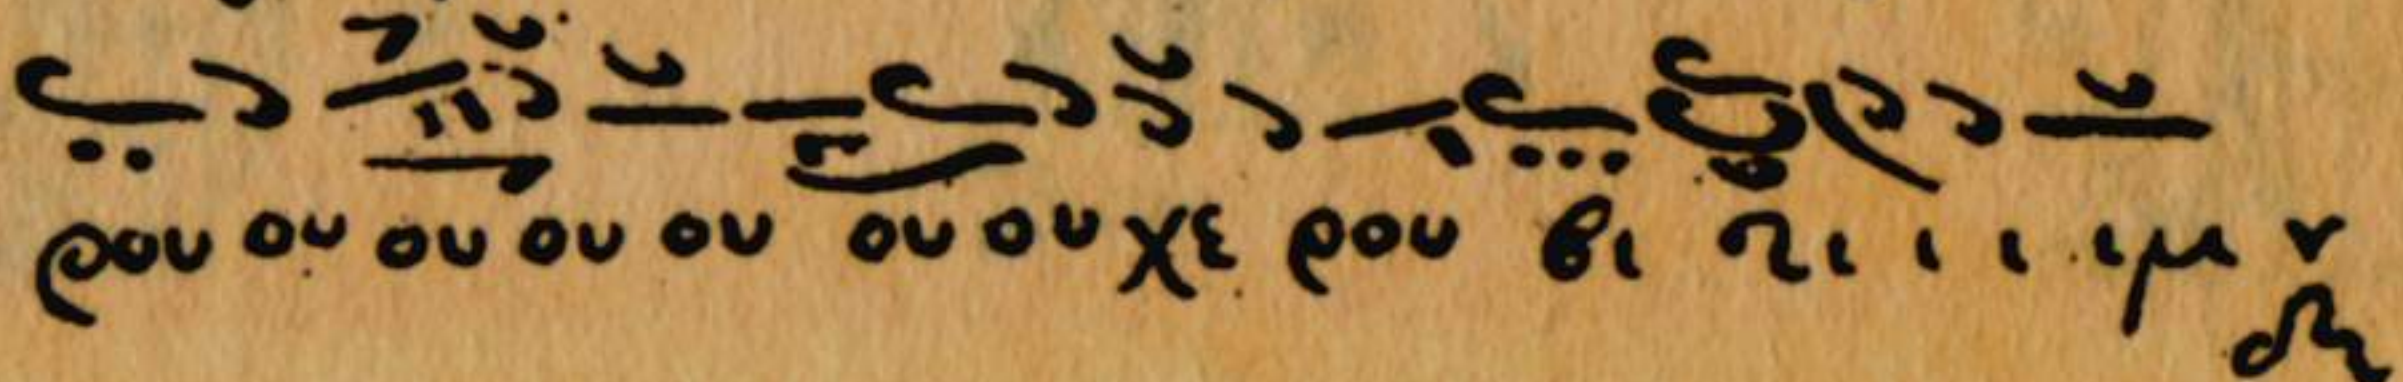 ρου ου ου ου ου ου ου χε ρου βι πι ι ι ιμ ν